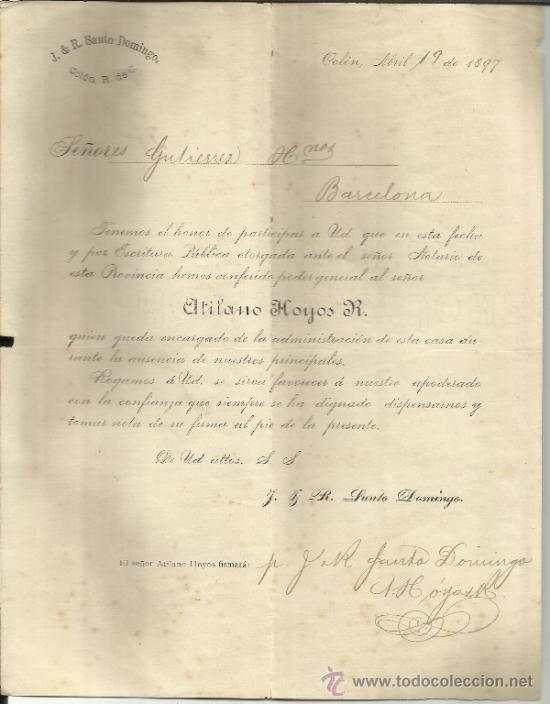 J. & R. Santo Domingo.
Colón R. de C.
Colón, Abril 19 de 1897
Señores Gutierrez Hnos
Barcelona
Tenemos el honor de participar a Ud. que en esta fecha
y por Escritura Pública otorgada ante el señor Notario de
esta Provincia hemos conferido poder general al señor
Atilano Hoyos R.
quien queda encargado de la administración de esta casa du-
rante la ausencia de nuestros principales.
Rogamos á Ud. se sirva favorecer á nuestro apoderado
con la confianza que siempre se ha dignado dispensarnos y
tomar nota de su firma al pie de la presente.
De Ud attos. S. S
J. & R. Santo Domingo.
El señor Atilano Hoyos firmará:
p. J & R Santo Domingo
A Hóyos R.
www.todocoleccion.net